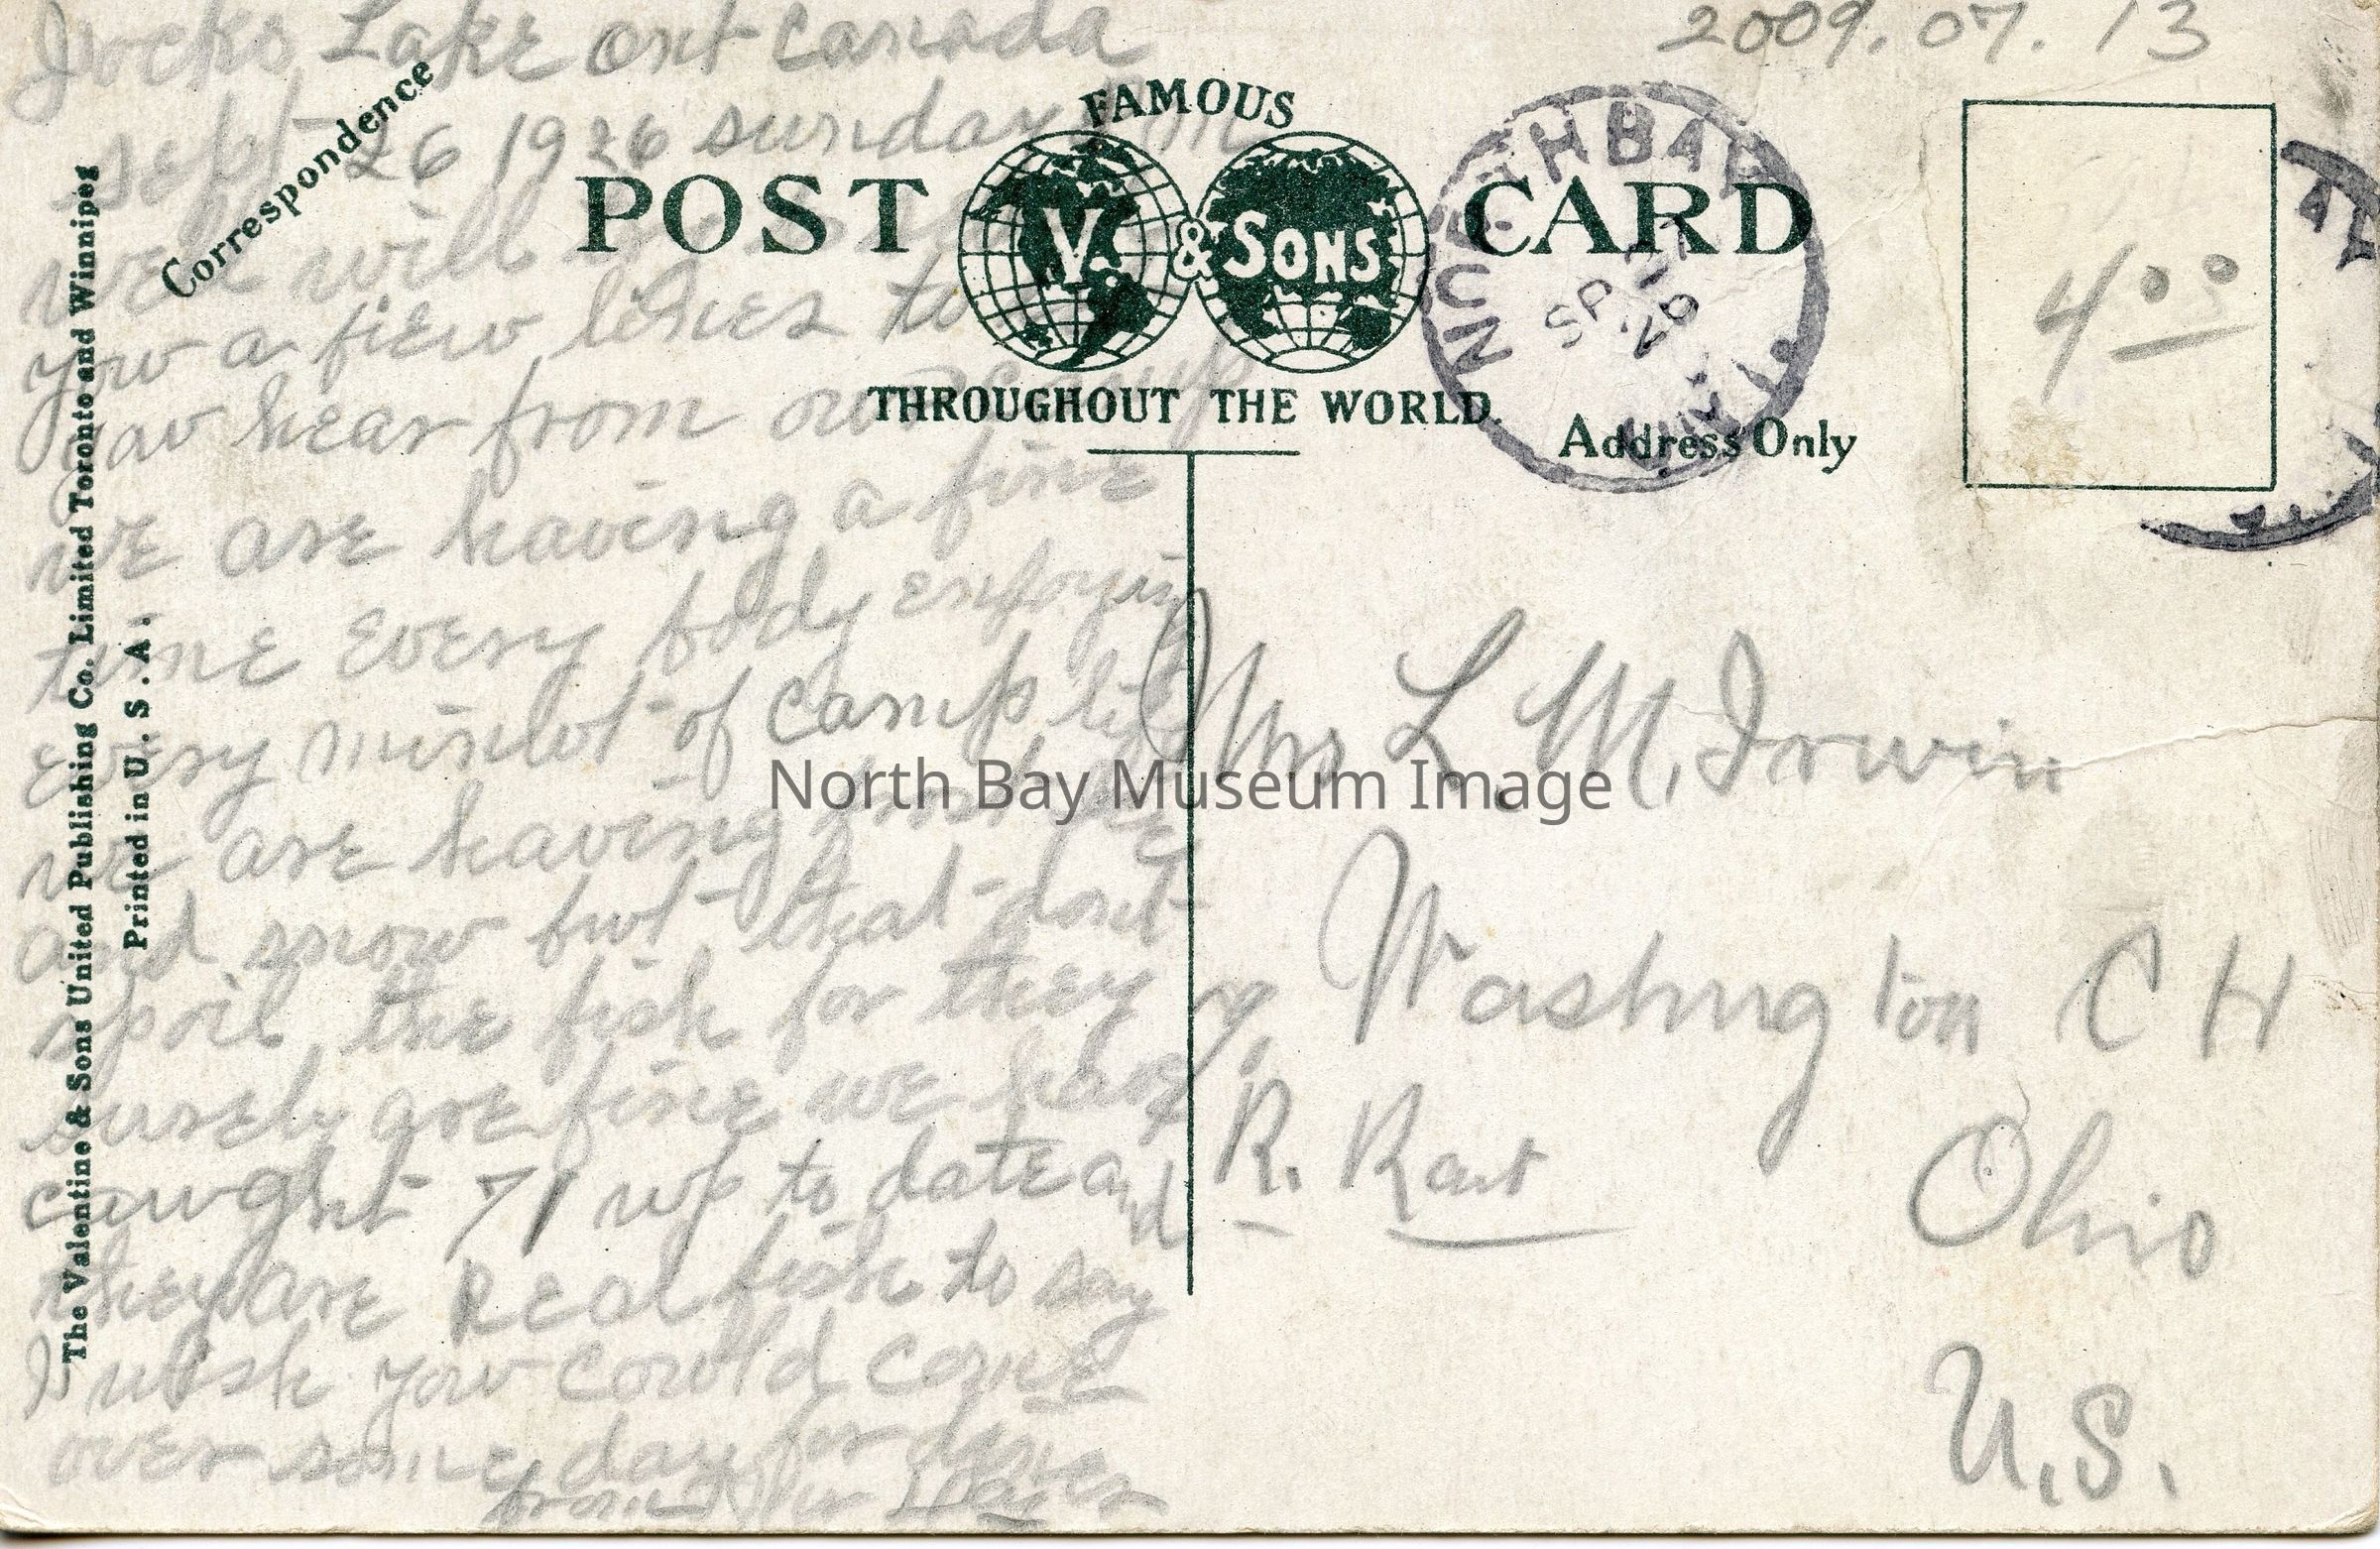 Jocko Lake ont Canada
Sept 26 1926 sunday
well will
you a few lines to
yow hear from our
we are having a fine
time every body enjoyin
every minut of camp life
we are having
and snow but that dont
spoil the fish for they
surely are fine we have
caught 71 up to date and
they are Real fish to say
I wish you could come
over some day for diner
from
2009.07.13
Correspondence
FAMOUS
POST CARD
V. & SONS
THROUGHOUT THE WORLD.
Address Only
NORTH BAY
SP 27
26
ONT.
4 00
Mrs L M. Irwin
Washington C H
R.
Ohio
U.S.
The Valentine & Sons United Publishing Co. Limited Toronto and Winnipeg
Printed in U.S.A.
North Bay Museum Image